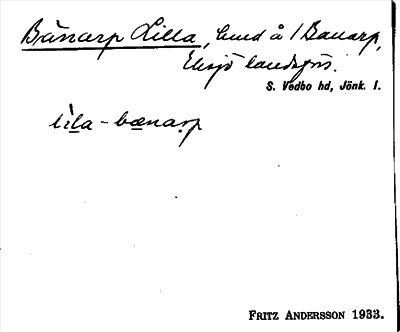 Bänarp Lilla, hmd å 1 Banarp,
Eksjö landsförs.
S. Vedbo hd, Jönk. l.
lila - bænarp
FRITZ ANDERSSON 1933.